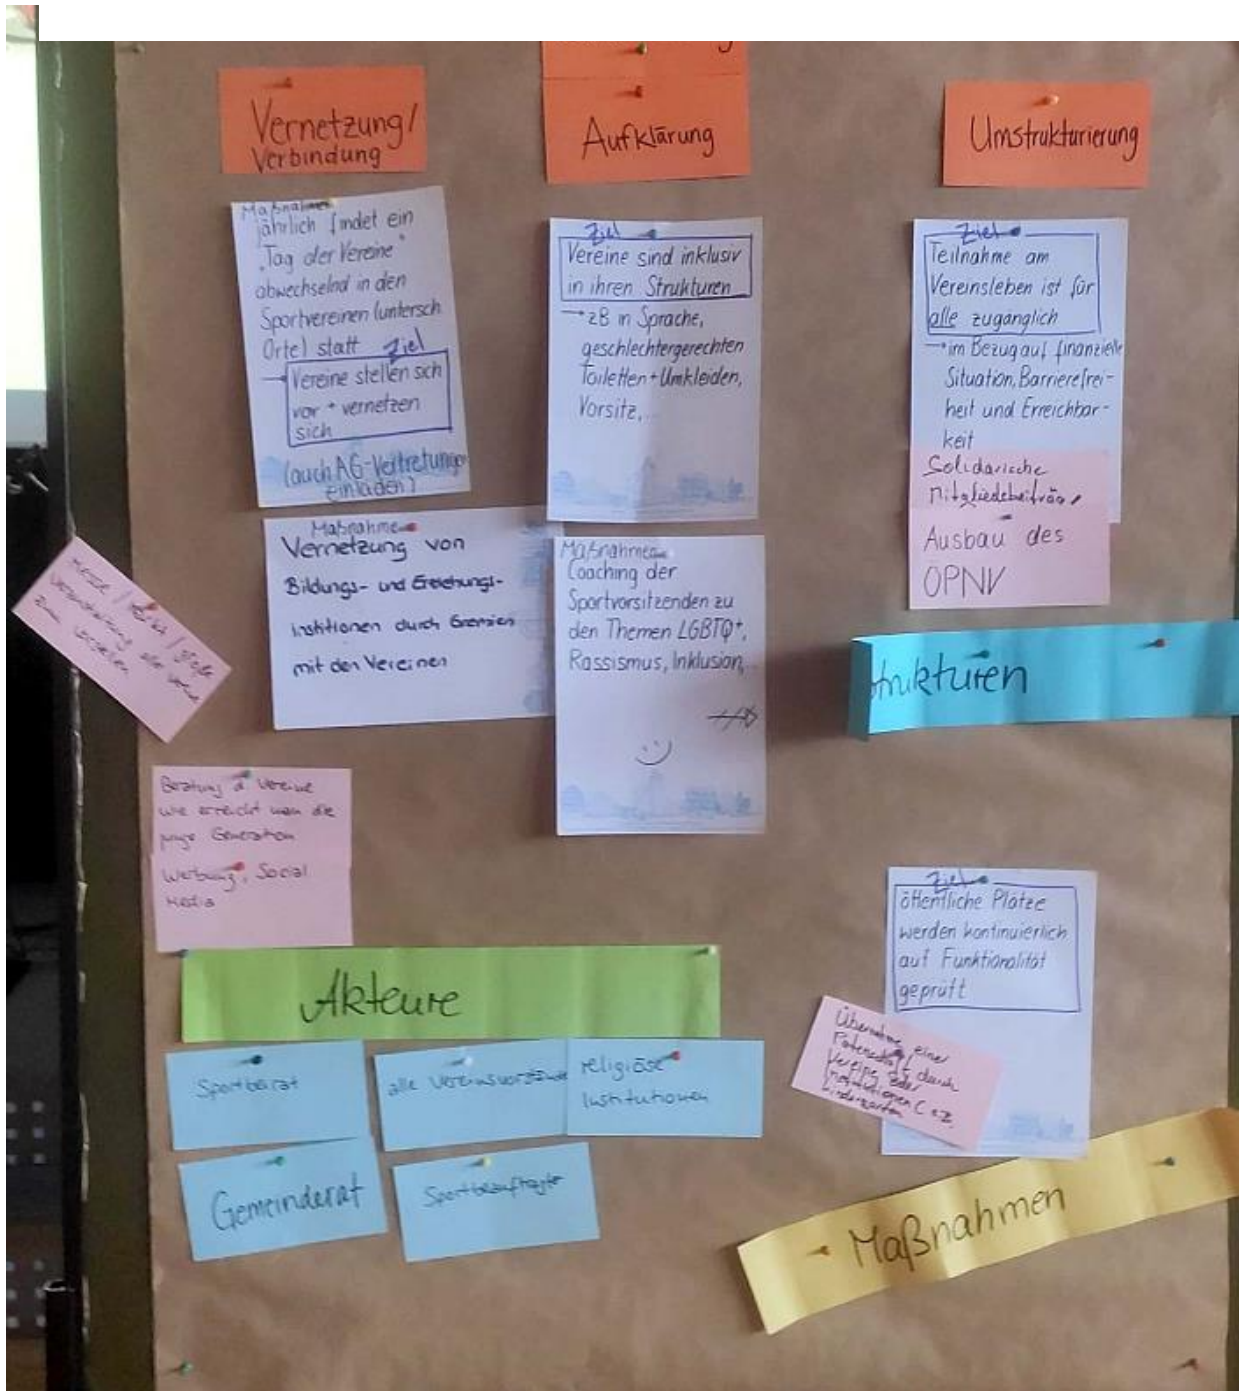 Vernetzung/
Verbindung
Aufklärung
Umstrukturierung
Maßnahme
jährlich findet ein
"Tag der Vereine"
abwechselnd in den
Sportvereinen (untersch.
Orte) statt Ziel
→ Vereine stellen sich
vor + vernetzen
sich
(auch AG-Vertretungen
einladen)
Maßnahme
Vernetzung von
Bildungs- und Erziehungs-
institionen durch Gremien
mit den Vereinen
Messe / Markt / große
Veranstaltung alle Vereine
zum vorstellen
Beratung d Vereine
wie erreicht man die
junge Generation
Werbung, Social
Media
Ziel
Vereine sind inklusiv
in ihren Strukturen
→ zB in Sprache,
geschlechtergerechten
Toiletten + Umkleiden,
Vorsitz,...
Maßnahme
Coaching der
Sportvorsitzenden zu
den Themen LGBTQ+,
Rassismus, Inklusion,...
Ziel
Teilnahme am
Vereinsleben ist für
alle zugänglich
→ im Bezug auf finanzielle
Situation, Barrierefrei-
heit und Erreichbar-
keit
Solidarische
Mitgliedsbeiträge
Ausbau des
ÖPNV
Strukturen
Ziel
öffentliche Plätze
werden kontinuierlich
auf Funktionalität
geprüft
Übernahme einer
Patenschaft durch
Vereine oder
Institutionen (z.B.
Kindergarten
Akteure
Sportbeirat
alle Vereinsvorstände
religiöse
Institutionen
Gemeinderat
Sportbeauftragte
Maßnahmen